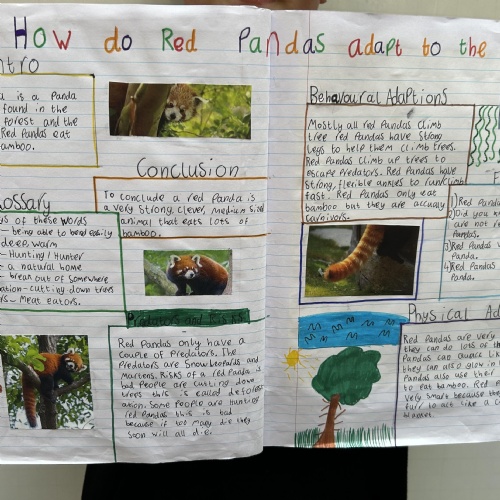 How do Red Pandas adapt to the
ntro
a is a Panda
found in the
forest and the
Red Pandas eat
bamboo.
Conclusion
To conclude a red Panda is
a very strong, clever, medium sized
animal that eats lots of
bamboo.
lossary
of these words
being able to bend easily
deep, warm
- Hunting / Hunter
- a natural home
- break out of somewhere
ation - cutting down trees
rs - Meat eators.
Predators and Risks
Red Pandas only have a
couple of Predators. The
Predators are Snow leopards and
Martens. Risks of a red Panda is
bad People are cutting down
trees this is called deforest
ation. Some People are Hunting
red Pandas this is bad
because if too many die they
soon will all die.
Behavoural Adaptions
Mostly all red Pandas climb
tree red Pandas have strong
legs to help them climb trees.
Red Pandas climb up trees to
escape predators. Red Pandas have
strong, flexible ankles to run/climb
fast. Red Pandas only eat
bamboo but they are accualy
carnivors.
F
1) Red Panda
2) Did you k
are not re
Pandas.
3) Red Pandas
Panda.
4) Red Pandas
Panda.
Physical Ad
Red Pandas are very
they can do lots of th
Pandas can quack like
they can also glow in
Pandas also use their
to eat bamboo. Red
very smart because they
fur to act like a c
blanket